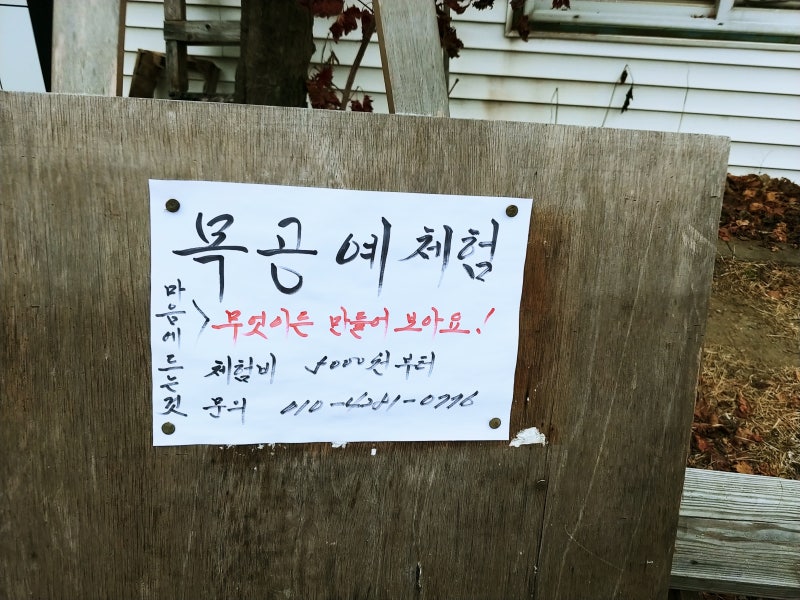 목공예체험
마음에드는것
무엇이든 만들어 보아요!
체험비 5000원부터
문의 010-4281-0776